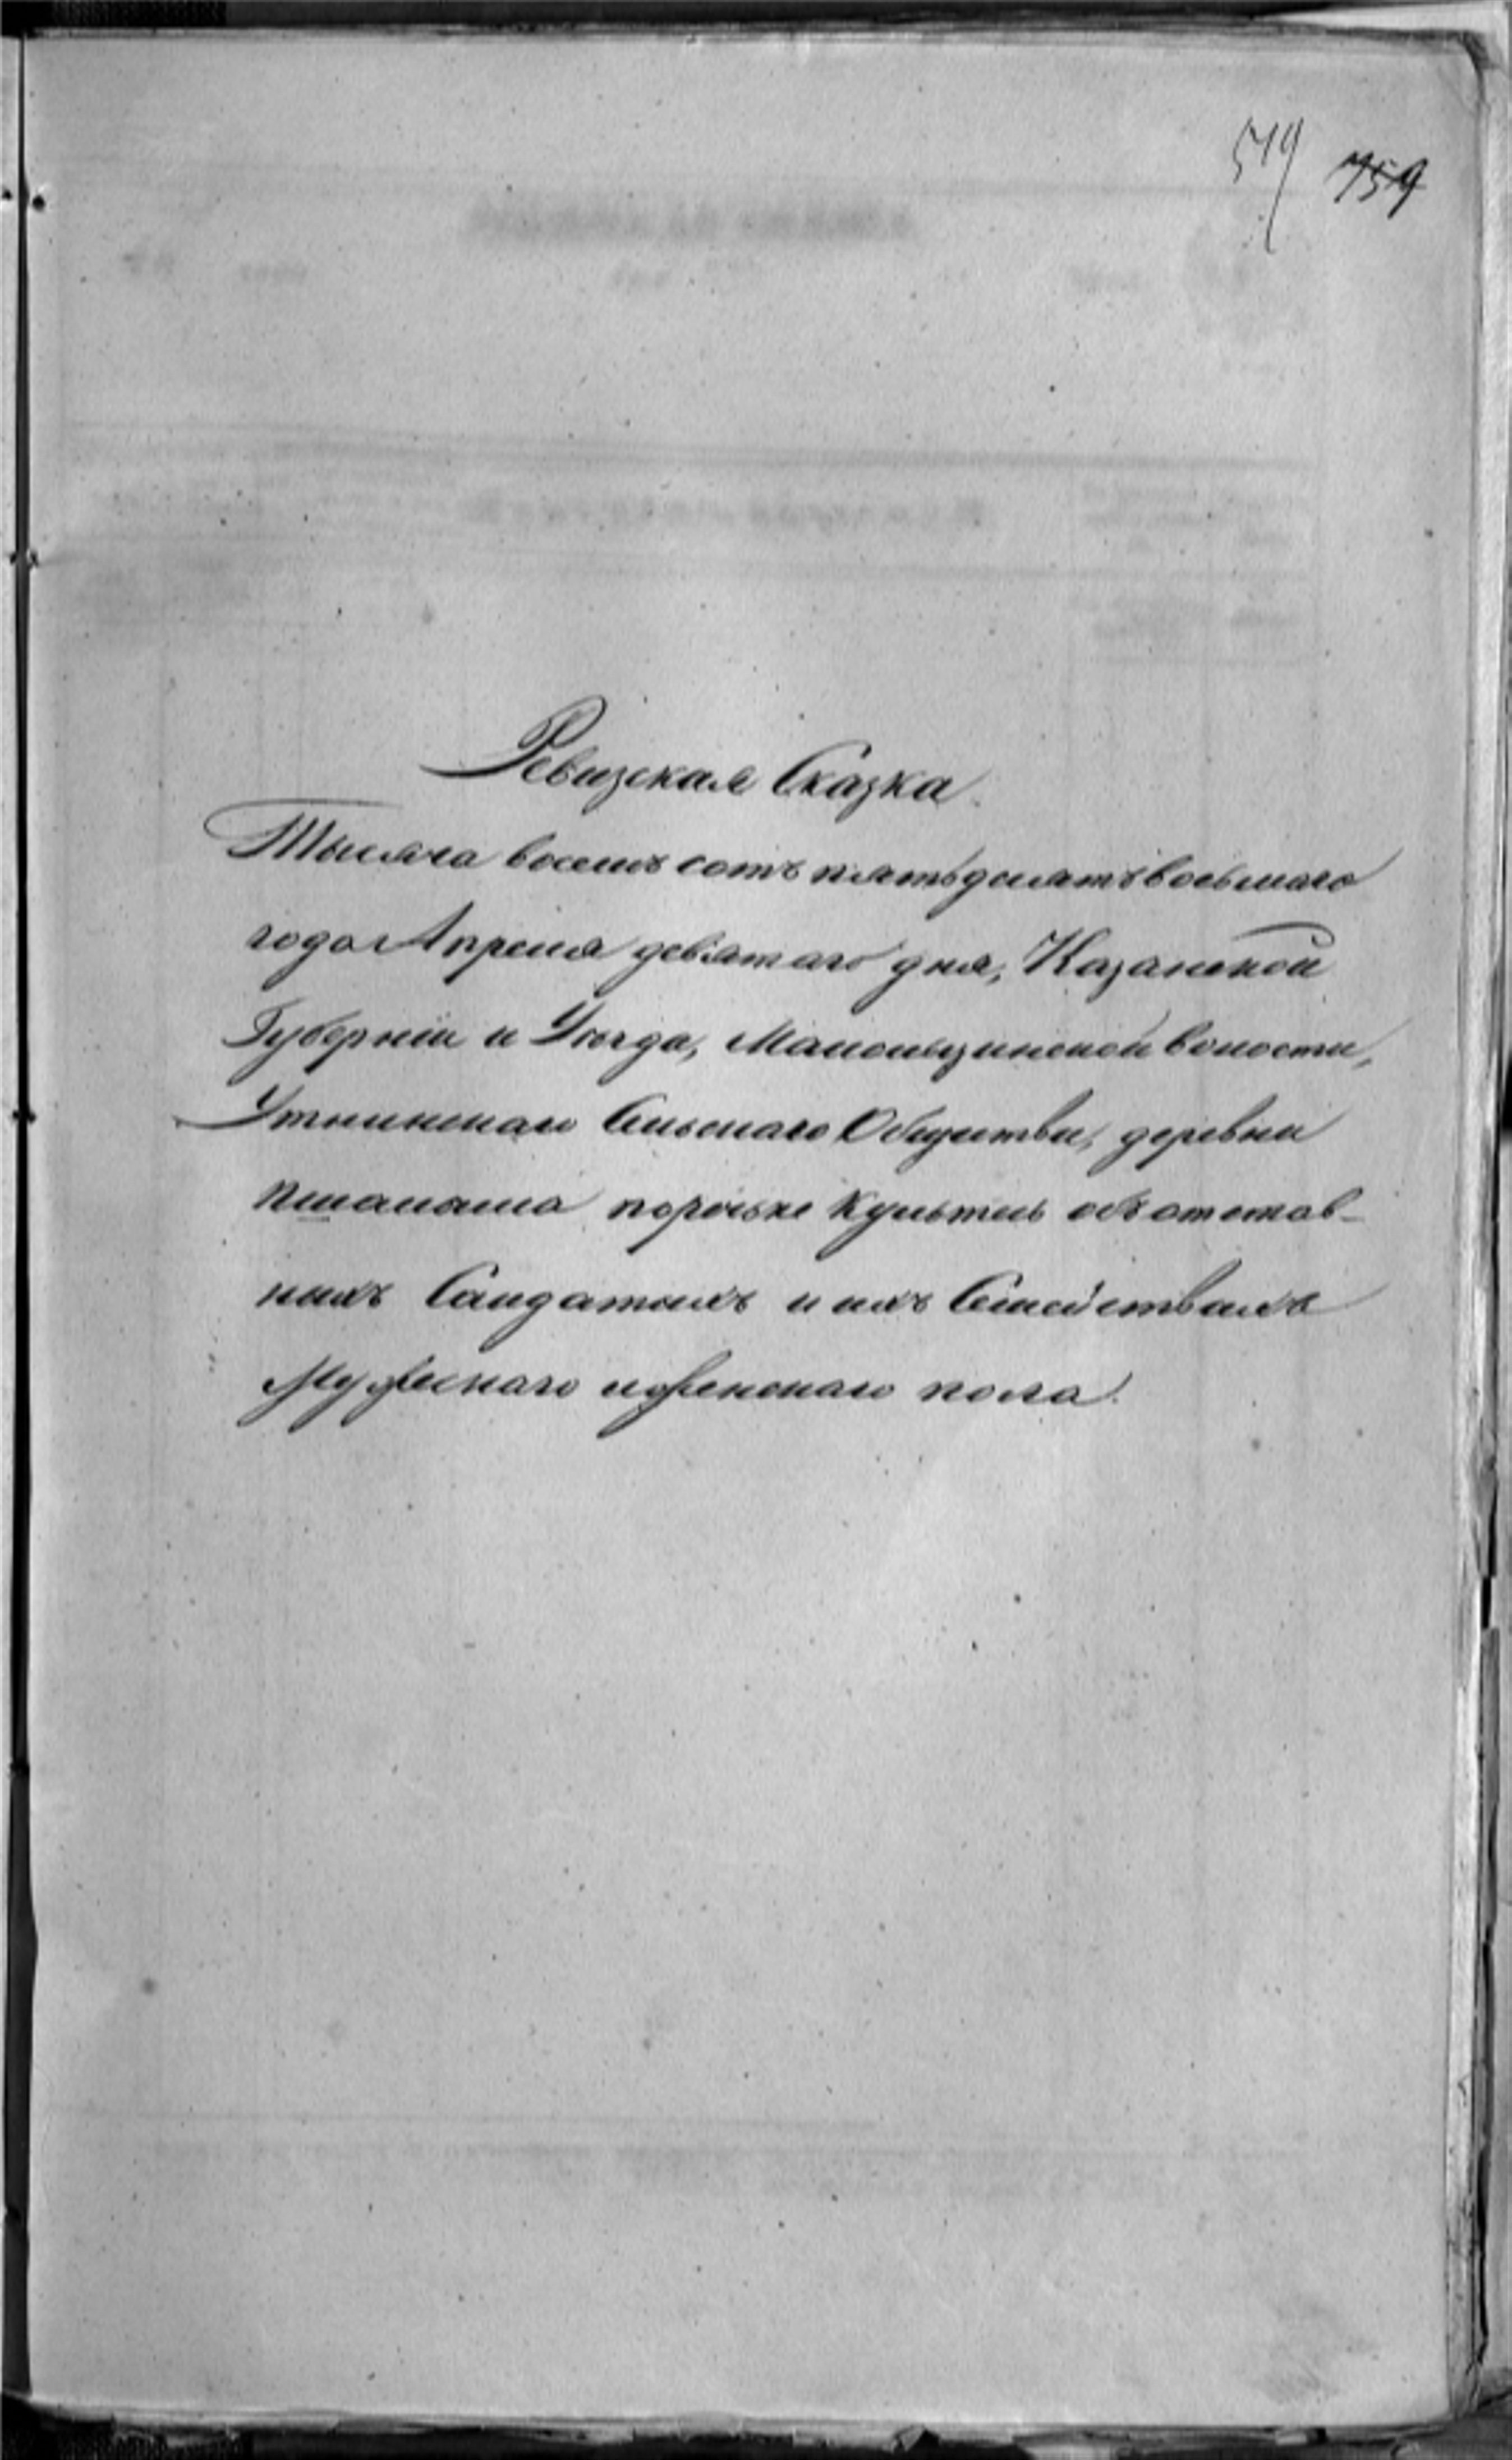 519 759
Ревизская Сказка
Тысяча восемь сотъ пятьдесятъ восьмаго
года Апреля девятаго дня, Казанской
Губерніи и Уѣзда, Мамсинской волости,
Утнинскаго Сельскаго Общества, деревни
по речьке Культесь объ отстав-
ныхъ Салдатахъ и ихъ Семействахъ
Мужескаго и женскаго пола.